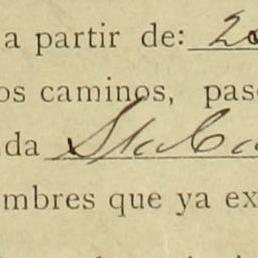 a partir de: 20
os caminos, pas
da Sta Ca
mbres que ya ex